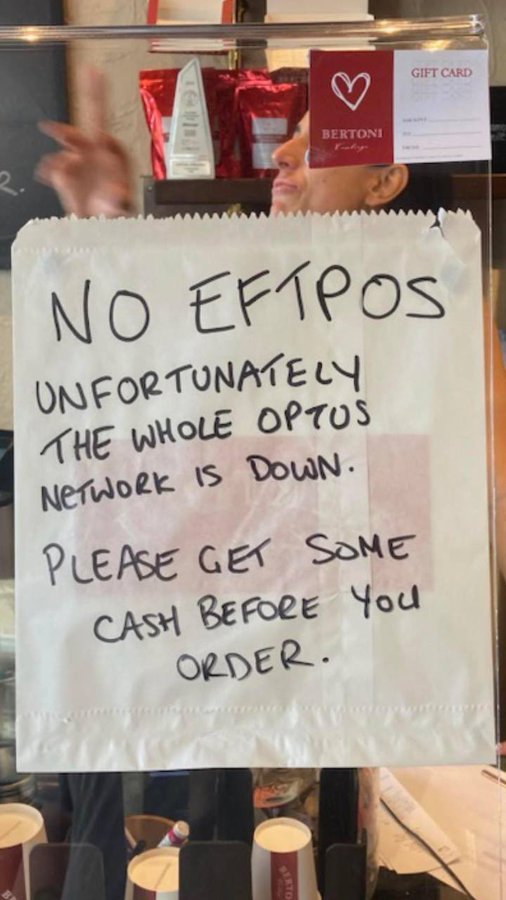 GIFT CARD
BERTONI
NO EFTPOS
UNFORTUNATELY
THE WHOLE OPTUS
NETWORK IS DOWN.
PLEASE GET SOME
CASH BEFORE YOU
ORDER.